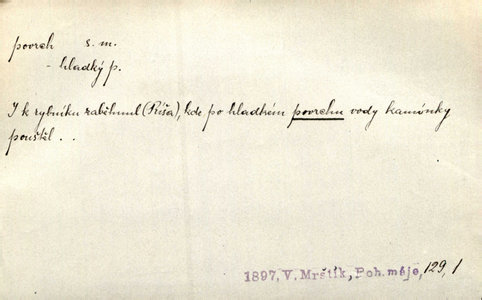 povrch s. m.
- hladký p.
I k rybníku zaběhnul (Ríša), kde po hladkém povrchu vody kamínky
pouštěl . .
1897, V. Mrštík, Poh. máje, 129, 1